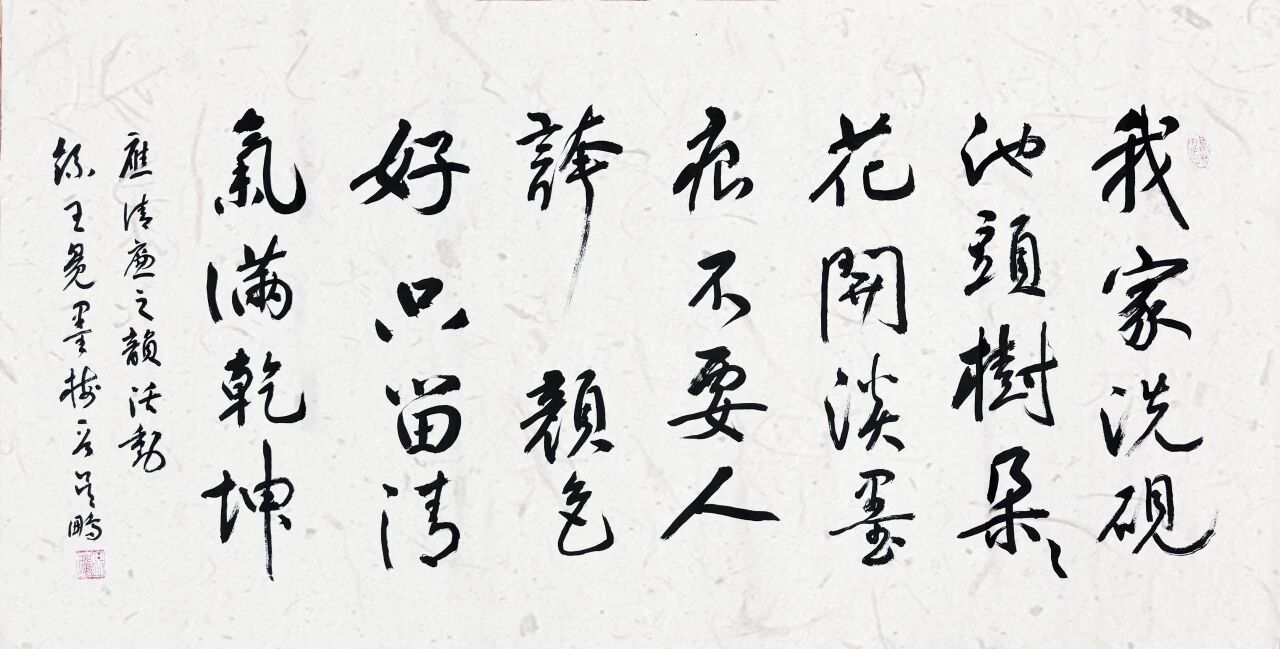 我家洗砚
池頭樹朵々
花開淡墨
痕不要人
誇顔色
好只留清
氣滿乾坤
應清廉之韻活動
錄王冕墨梅 吴鵬